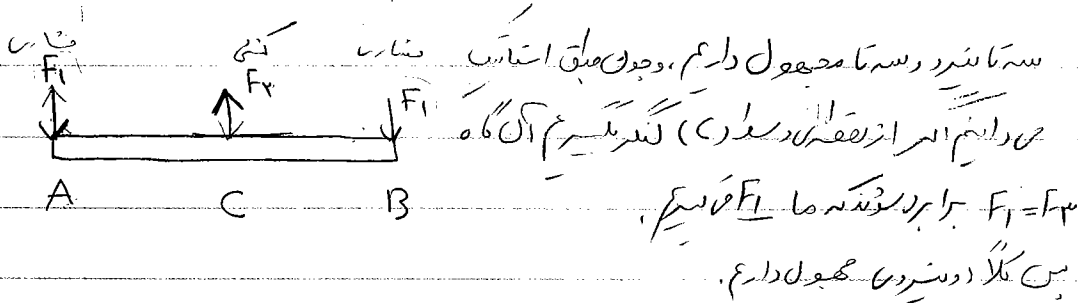 فشاری کششی فشاری
F۱ F۲ F۱
A C B
سه تا نیرو و سه تا مجهول داریم، و چون طبق استاتیک
می دانیم اگر از نقطه‌ی وسط (C) گشتاور بگیریم آن گاه
F۱=F۳ برابر می‌شوند که ما F۱ می‌گیریم.
پس کلاً دو نیروی مجهول داریم.